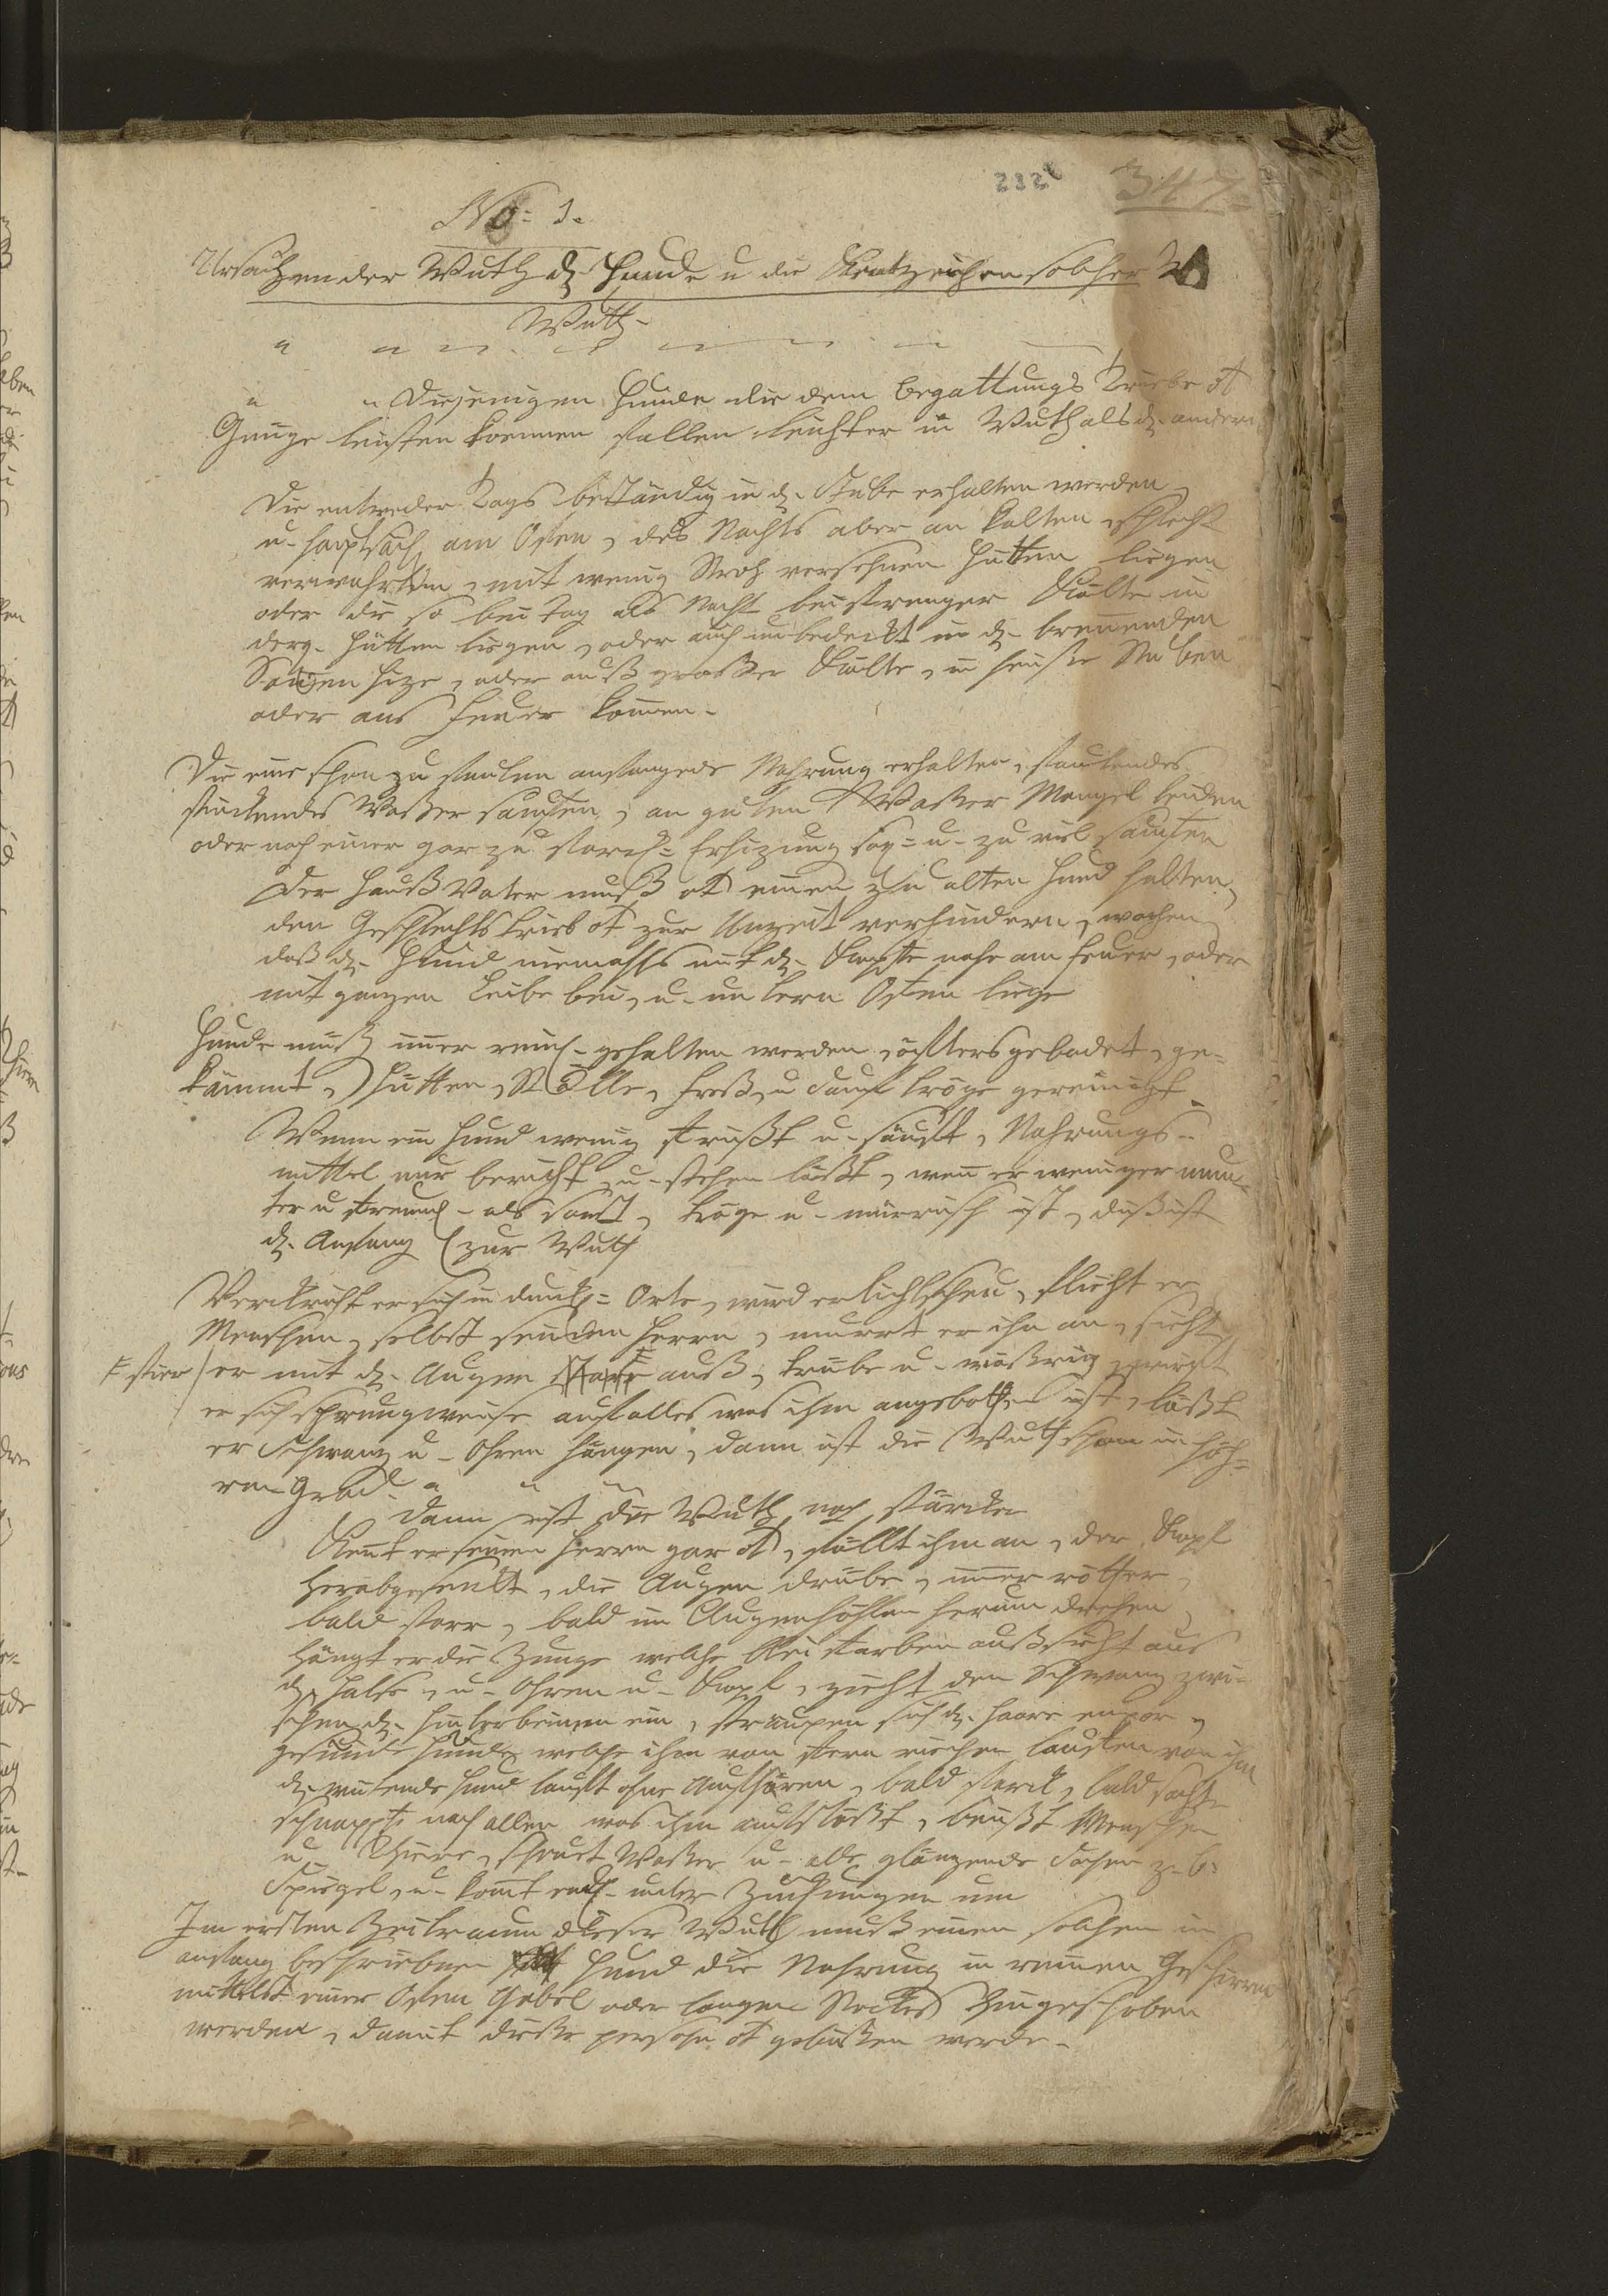 232
347.
No: 1.
Ursachen der Wuth d. Hunde u die Kentzeichen solcher
Wuth.
Diejenigen Hunde die dem Begattungs Triebe ot
Genüge leisten koennen fallen leichter in Wuth als d. andern
Die entweder Tags beständig in d. Stube erhalten werden,
u. hauptsäch am Ofen, des Nachts aber an kalten schlecht
verwahrten, mit wenig Stroh versehnen Hütten liegen
oder die so bei Tag als Nacht bei strenger Kälte in
derg. Hütten liegen, oder auch unbedeckt in d. brenenden
Soñen Hize, oder auß großer Kälte, in heiße Stuben
oder ans Feuer komen.
Die eine schon zu faulen anfangede Nahrung erhalten, faulendes
stinckendes Waßer sauffen, an guten Waßer Mangel leiden
oder nach einer gar zu starck= Erhizung u. zu viel sauffen
Der Hauß Vater muß ot einen zu alten Hund halten,
den Geschlechtstrieb ot zur Unzeit verhindern, wachen
daß d. Hund niemahls mit d. Kopfe nahe am Feuer, oder
mit ganzen Leibe bei, u. untern Ofen liege
Hunde muß imer rein gehalten werden, öffters gebadet, ge=
kämmt, Hütten, Ställe, Freß u Sauf tröge gereinigt
Wenn ein Hund wenig frißt u. säuft, Nahrungs-
mittel nur beriecht u. stehen läßt, wen er weniger mun=
ter u freund. als sonst, träge u. mürrisch ist, dieß ist
d. Anfang zur Wuth
Verkriecht er sich in dunck= Orte, wird er lichtscheu, flieht er
Menschen, selbst seinen Herrn, murrt er ihn an, sieht
F stier / er mit d. Augen F auß, trübe u. wäßrig, wirft
er sich sprungweise auf alles was ihm angebothen ist, läßt
er Schwanz u. Ohren hängen, dann ist die Wuth schon in höh=
ren Grad.
Dann ist die Wuth noch stärcker
Kent er seinen Herrn gar ot, fällt ihm an, der Kopf
herabgesenkt, die Augen drübe, imer röther,
bald starr, bald in Augenhöhlen herum drehen,
hängt er die Zunge welche bleifarben außsieht aus
d. Halse, u. Ohren u. Kopf, zieht den Schwanz zwi-
schen d. Hinterbeinen ein, sträupen sich d. Haare enpor,
gesunde Hunde welche ihm von fern riechen laufen von ihm
d. wutende Hund lauft ohne Aufhören, bald starck, bald sacht
schnappt nach allen was ihm aufstößt, beißt Menschen
u. Thiere, scheuet Waßer u. alle glänzende Sachen z. b:
Spiegel, u. komt end. unter Zuckungen um
Im ersten Zeitraum dieser Wuth muß einen solchen im
anfang beschriebnen Hund die Nahrung in reinen Geschirren
mittelst einer Ofen Gabel oder langen Stockes hingeschoben
werden, damit dieße person ot gebißen werde.